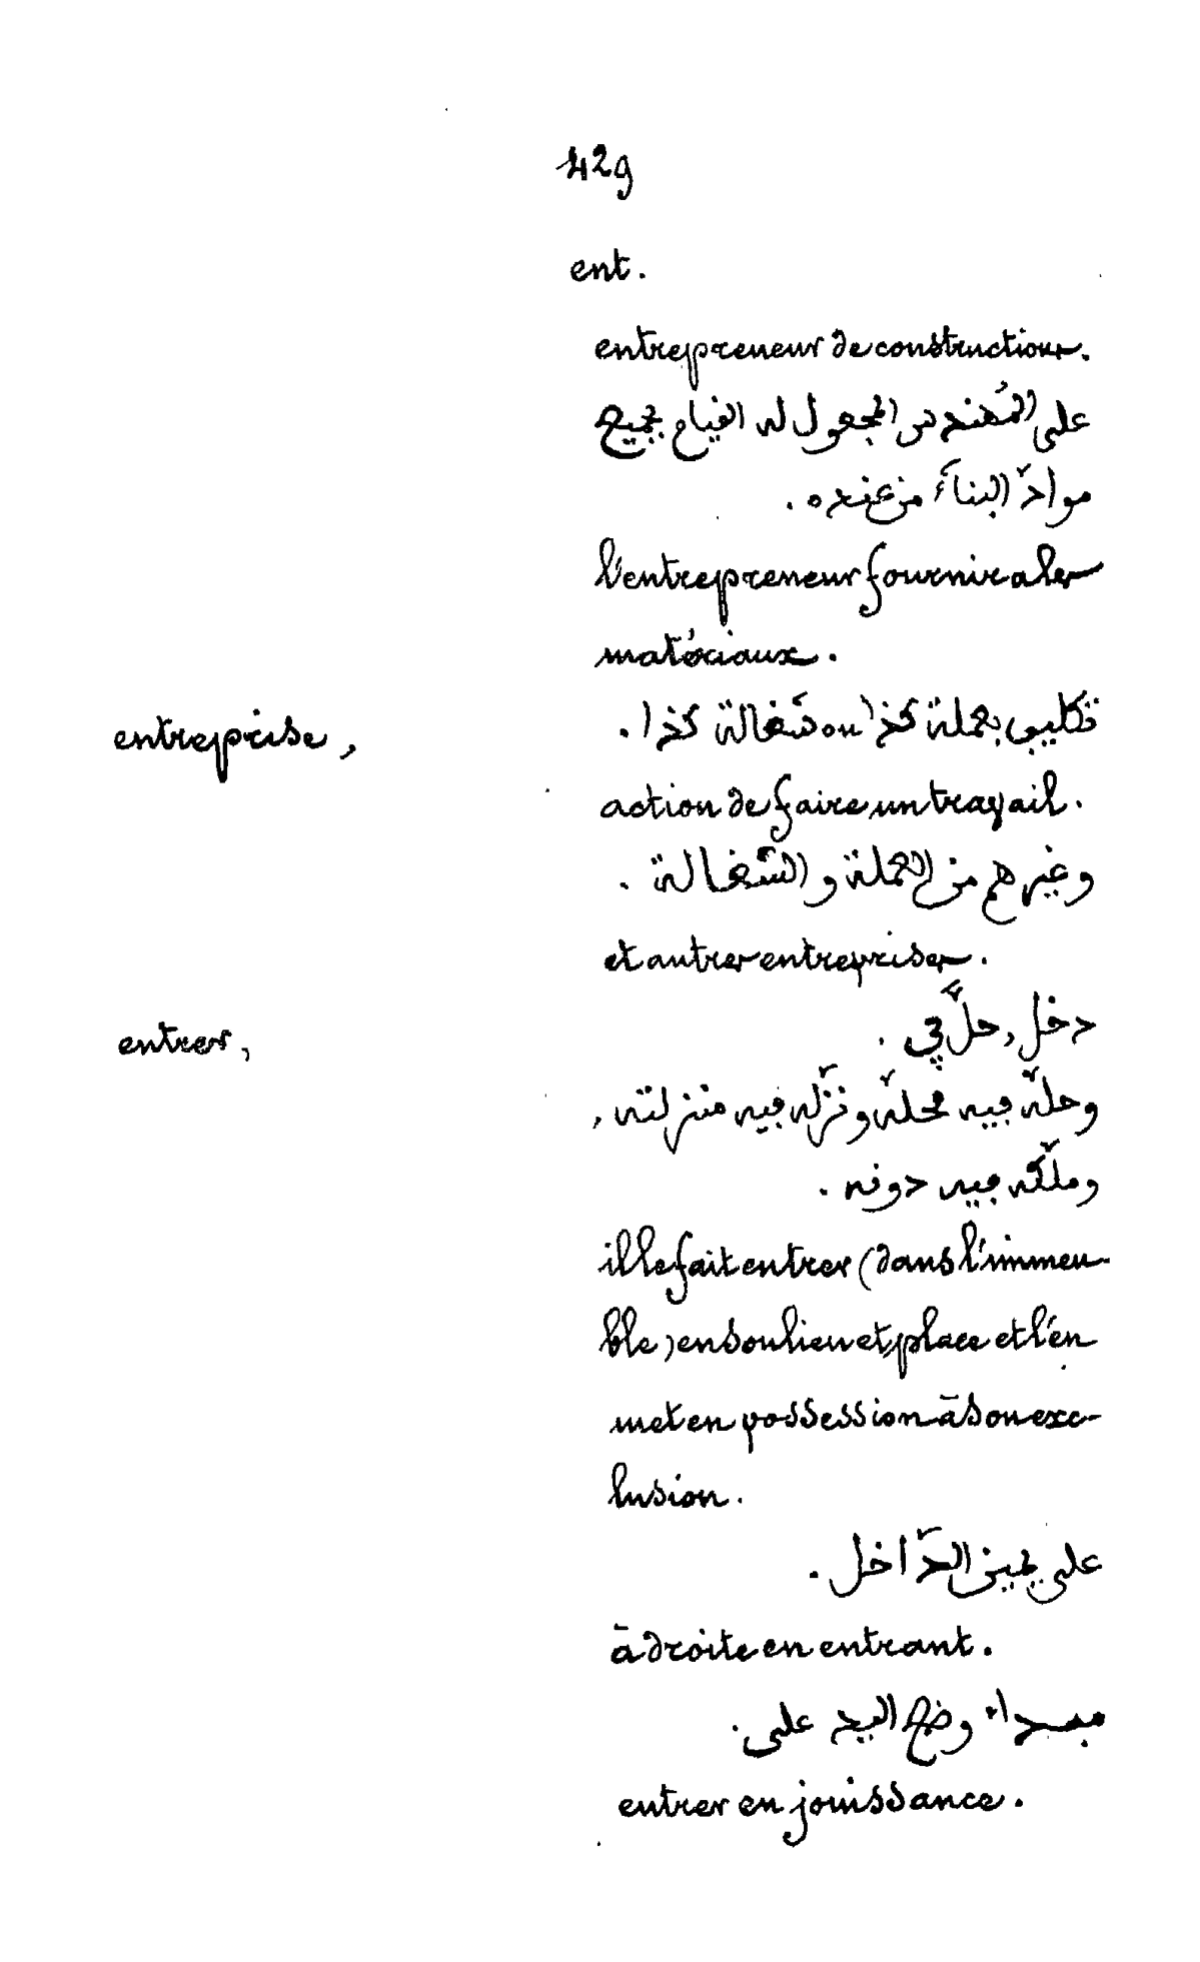 429
ent.
entrepreneur de constructions.
على المُهندس المجعول له القيام بجميع
موادّ البناءَ من عنده.
l'entrepreneur fournira les
matériaux.
entreprise, تكليف بعملة كذا ou شغالة كذا.
action de faire un travail.
وغيرهم من العملة والشغالة.
et autres entreprises.
entrer, دخل, حلَّ في.
وحلّه فيه محلّه ونزّله فيه منزلته,
وملّكه فيه دونه.
il le fait entrer (dans l'immeu-
ble) en son lieu et place et l'en
met en possession à son exc-
lusion.
على يمين الدّاخل.
à droite en entrant.
وضع اليد على.
entrer en jouissance.